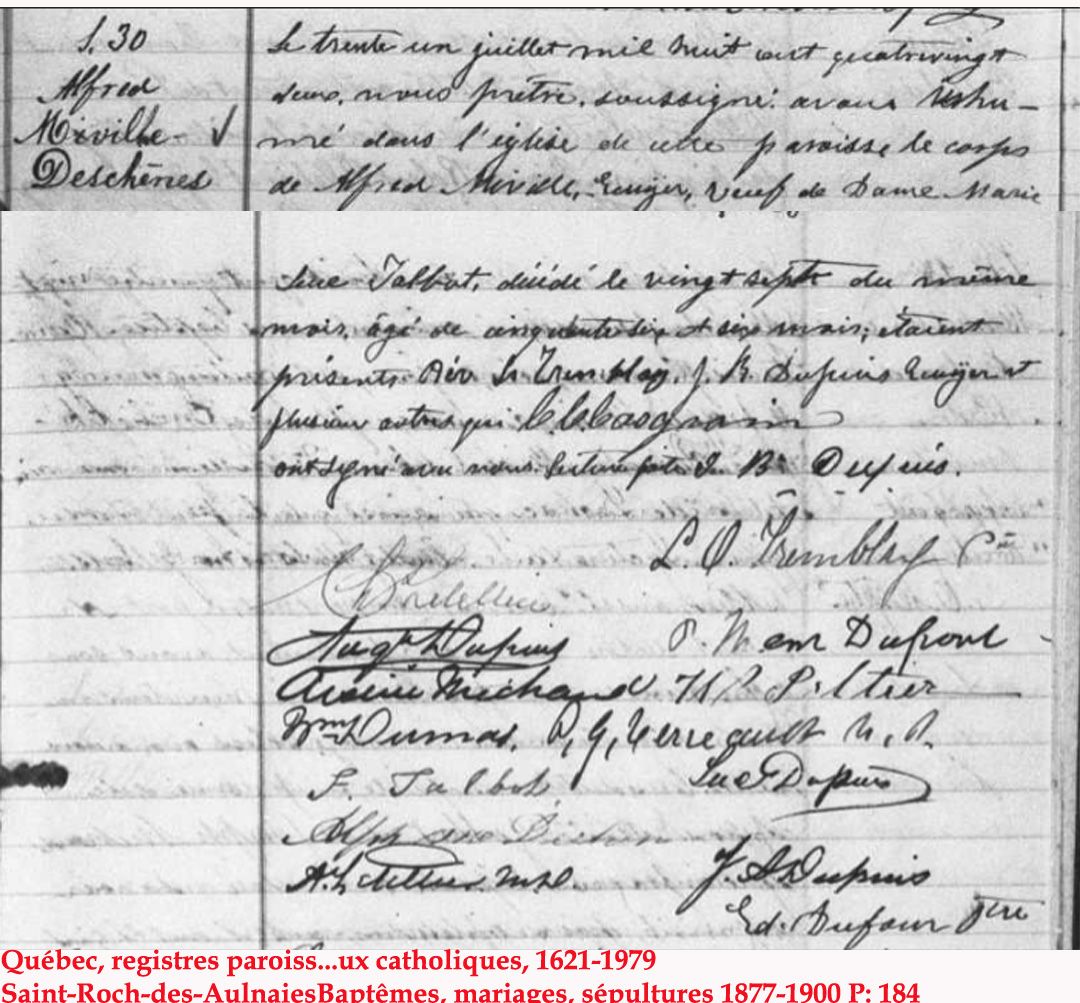 S. 30
Alfred
Miville
Deschênes
Le trente un juillet mil huit cent quatrevingt
deux, nous prêtre, soussigné avons inhu-
mé dans l'église de cette paroisse le corps
de Alfred Miville, Ecuyer, veuf de Dame Marie
Luce Talbot, décédé le vingt sept du même
mois, âgé de cinquante six et six mois; étaient
présents Rév Ls Tremblay, J. B. Dupuis Ecuyer et
plusieurs autres qui C. C. Casgrain
ont signé avec nous. lecture faite J. Bte Dupuis.
L. O. Tremblay
Augte Dupuis
P. M Dufour
Michaud
Pelletier
Dumas. P. G. Verreault N. P.
F. Talbot
Luc Dupuis
Alph
A. Letellier
J. Dupuis
Ed. Dufour Ptre
Québec, registres paroiss...ux catholiques, 1621-1979
Saint-Roch-des-AulnaiesBaptêmes, mariages, sépultures 1877-1900 P: 184